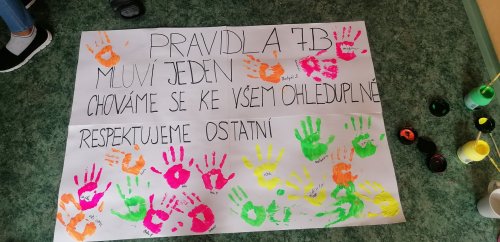 PRAVIDLA 7.B
MLUVÍ JEDEN
CHOVÁME SE KE VŠEM OHLEDUPLNĚ
RESPEKTUJEME OSTATNÍ